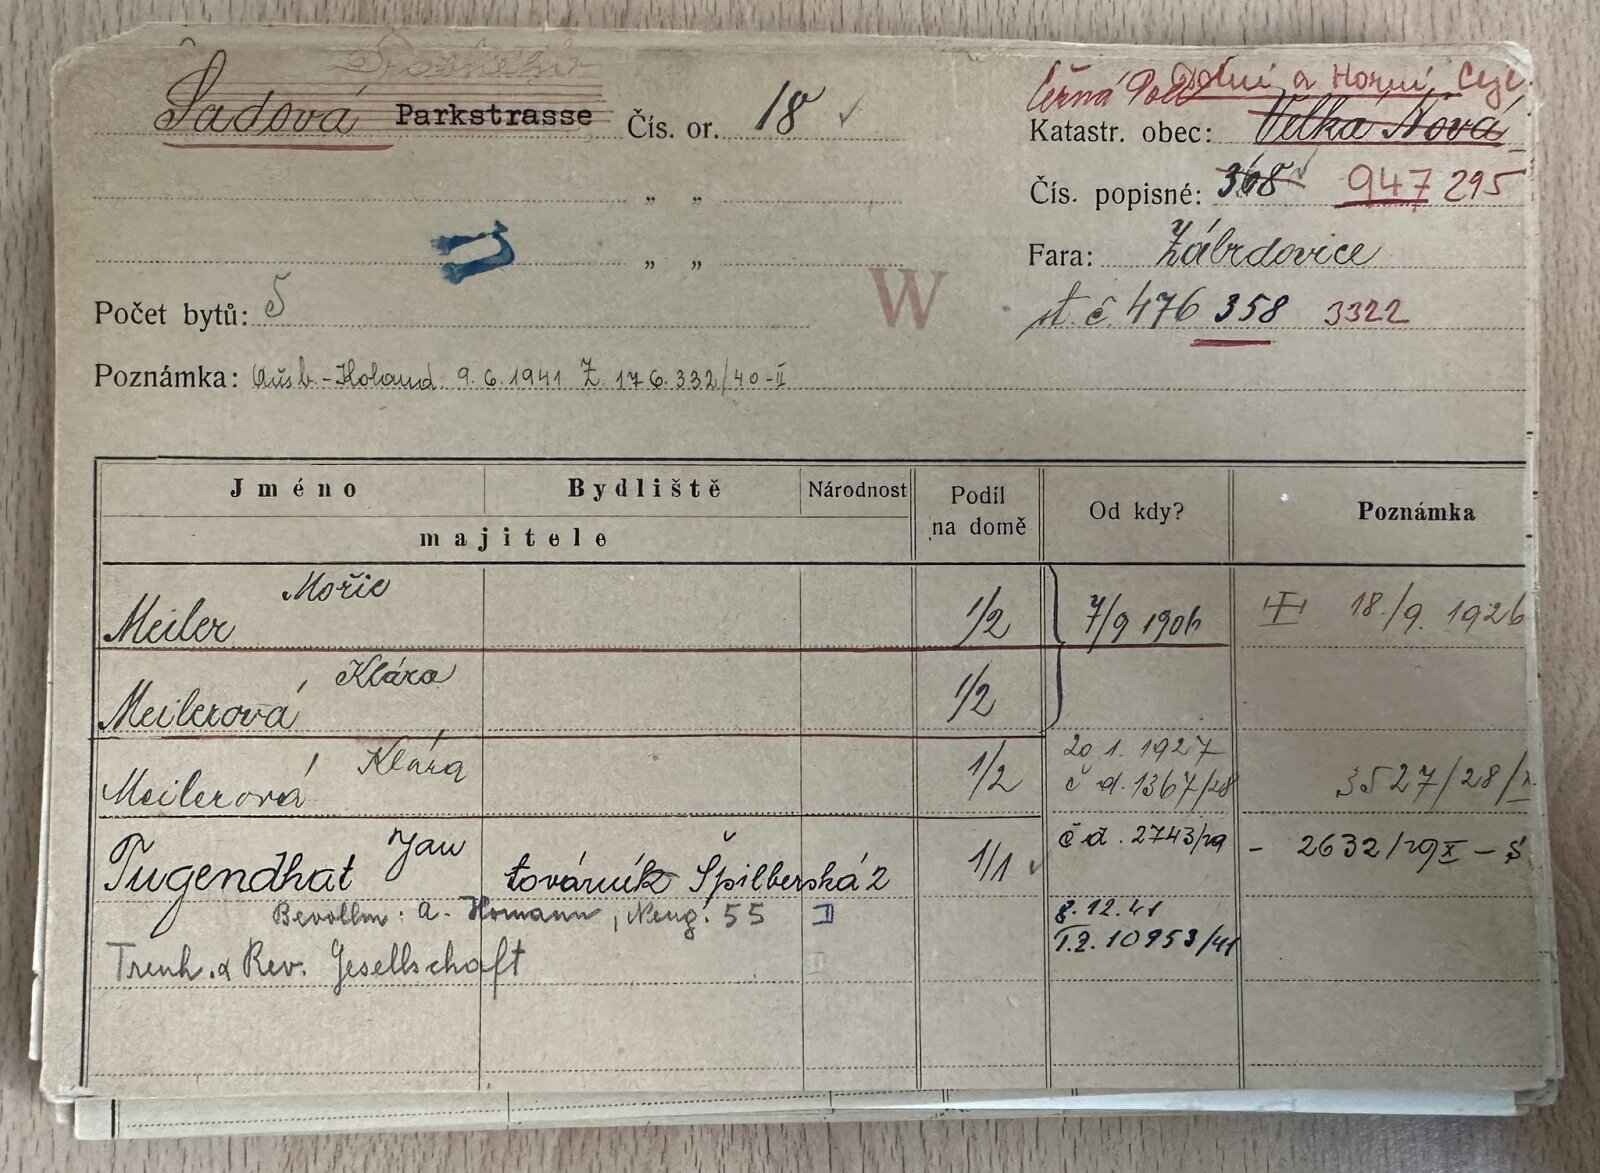 Drobného
Sadová Parkstrasse Čís. or. 18
Černá Pole Dolní a Horní Cejl
Katastr. obec: Velká Nová
" "
Čís. popisné: 368 947 295
" "
Fara: Zábrdovice
Počet bytů: 5
W
st. č 476 358 3322
Poznámka: 9.6.1941 Z. 176.332/40-II
Jméno Bydliště Národnost Podíl na domě Od kdy? Poznámka
majitele
Meiler Mořic 1/2 7/9 1906 18./9. 1926
Meilerová Klára 1/2
Meilerová Klára 1/2 20 1. 1927 č d. 1367/28 3527/28/
Tugendhat Jan továrník Špilberská 2 1/1 č d. 2743/29 - 2632/29 X - Š
Bevollm: A. Homann, Neug. 55 II 8.12.41
T.Z. 10953/41
Treuh. & Rev. Gesellschaft